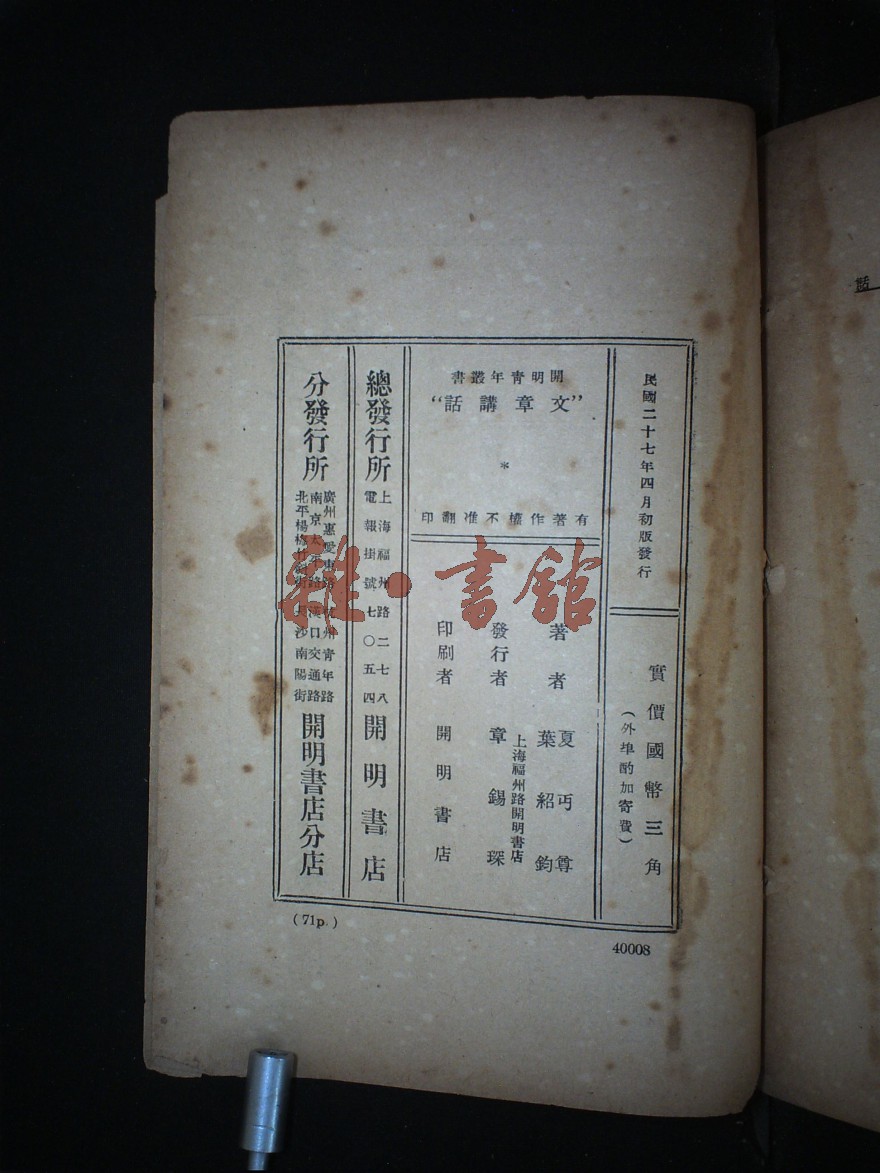 民國二十七年四月初版發行
實價國幣三角
(外埠酌加寄費)
開明青年叢書
"文章講話"
*
有著作權不准翻印
著者 夏丏尊
葉紹鈞
發行者 上海福州路開明書店
章錫琛
印刷者 開明書店
總發行所
上海福州路二七八
電報掛號七〇五四
開明書店
分發行所
廣州惠愛東路 州青年路
南京太平路 漢口交通路
北平楊梅竹斜街 長沙南陽街
開明書店分店
(71p.)
40008
話
雜·書館